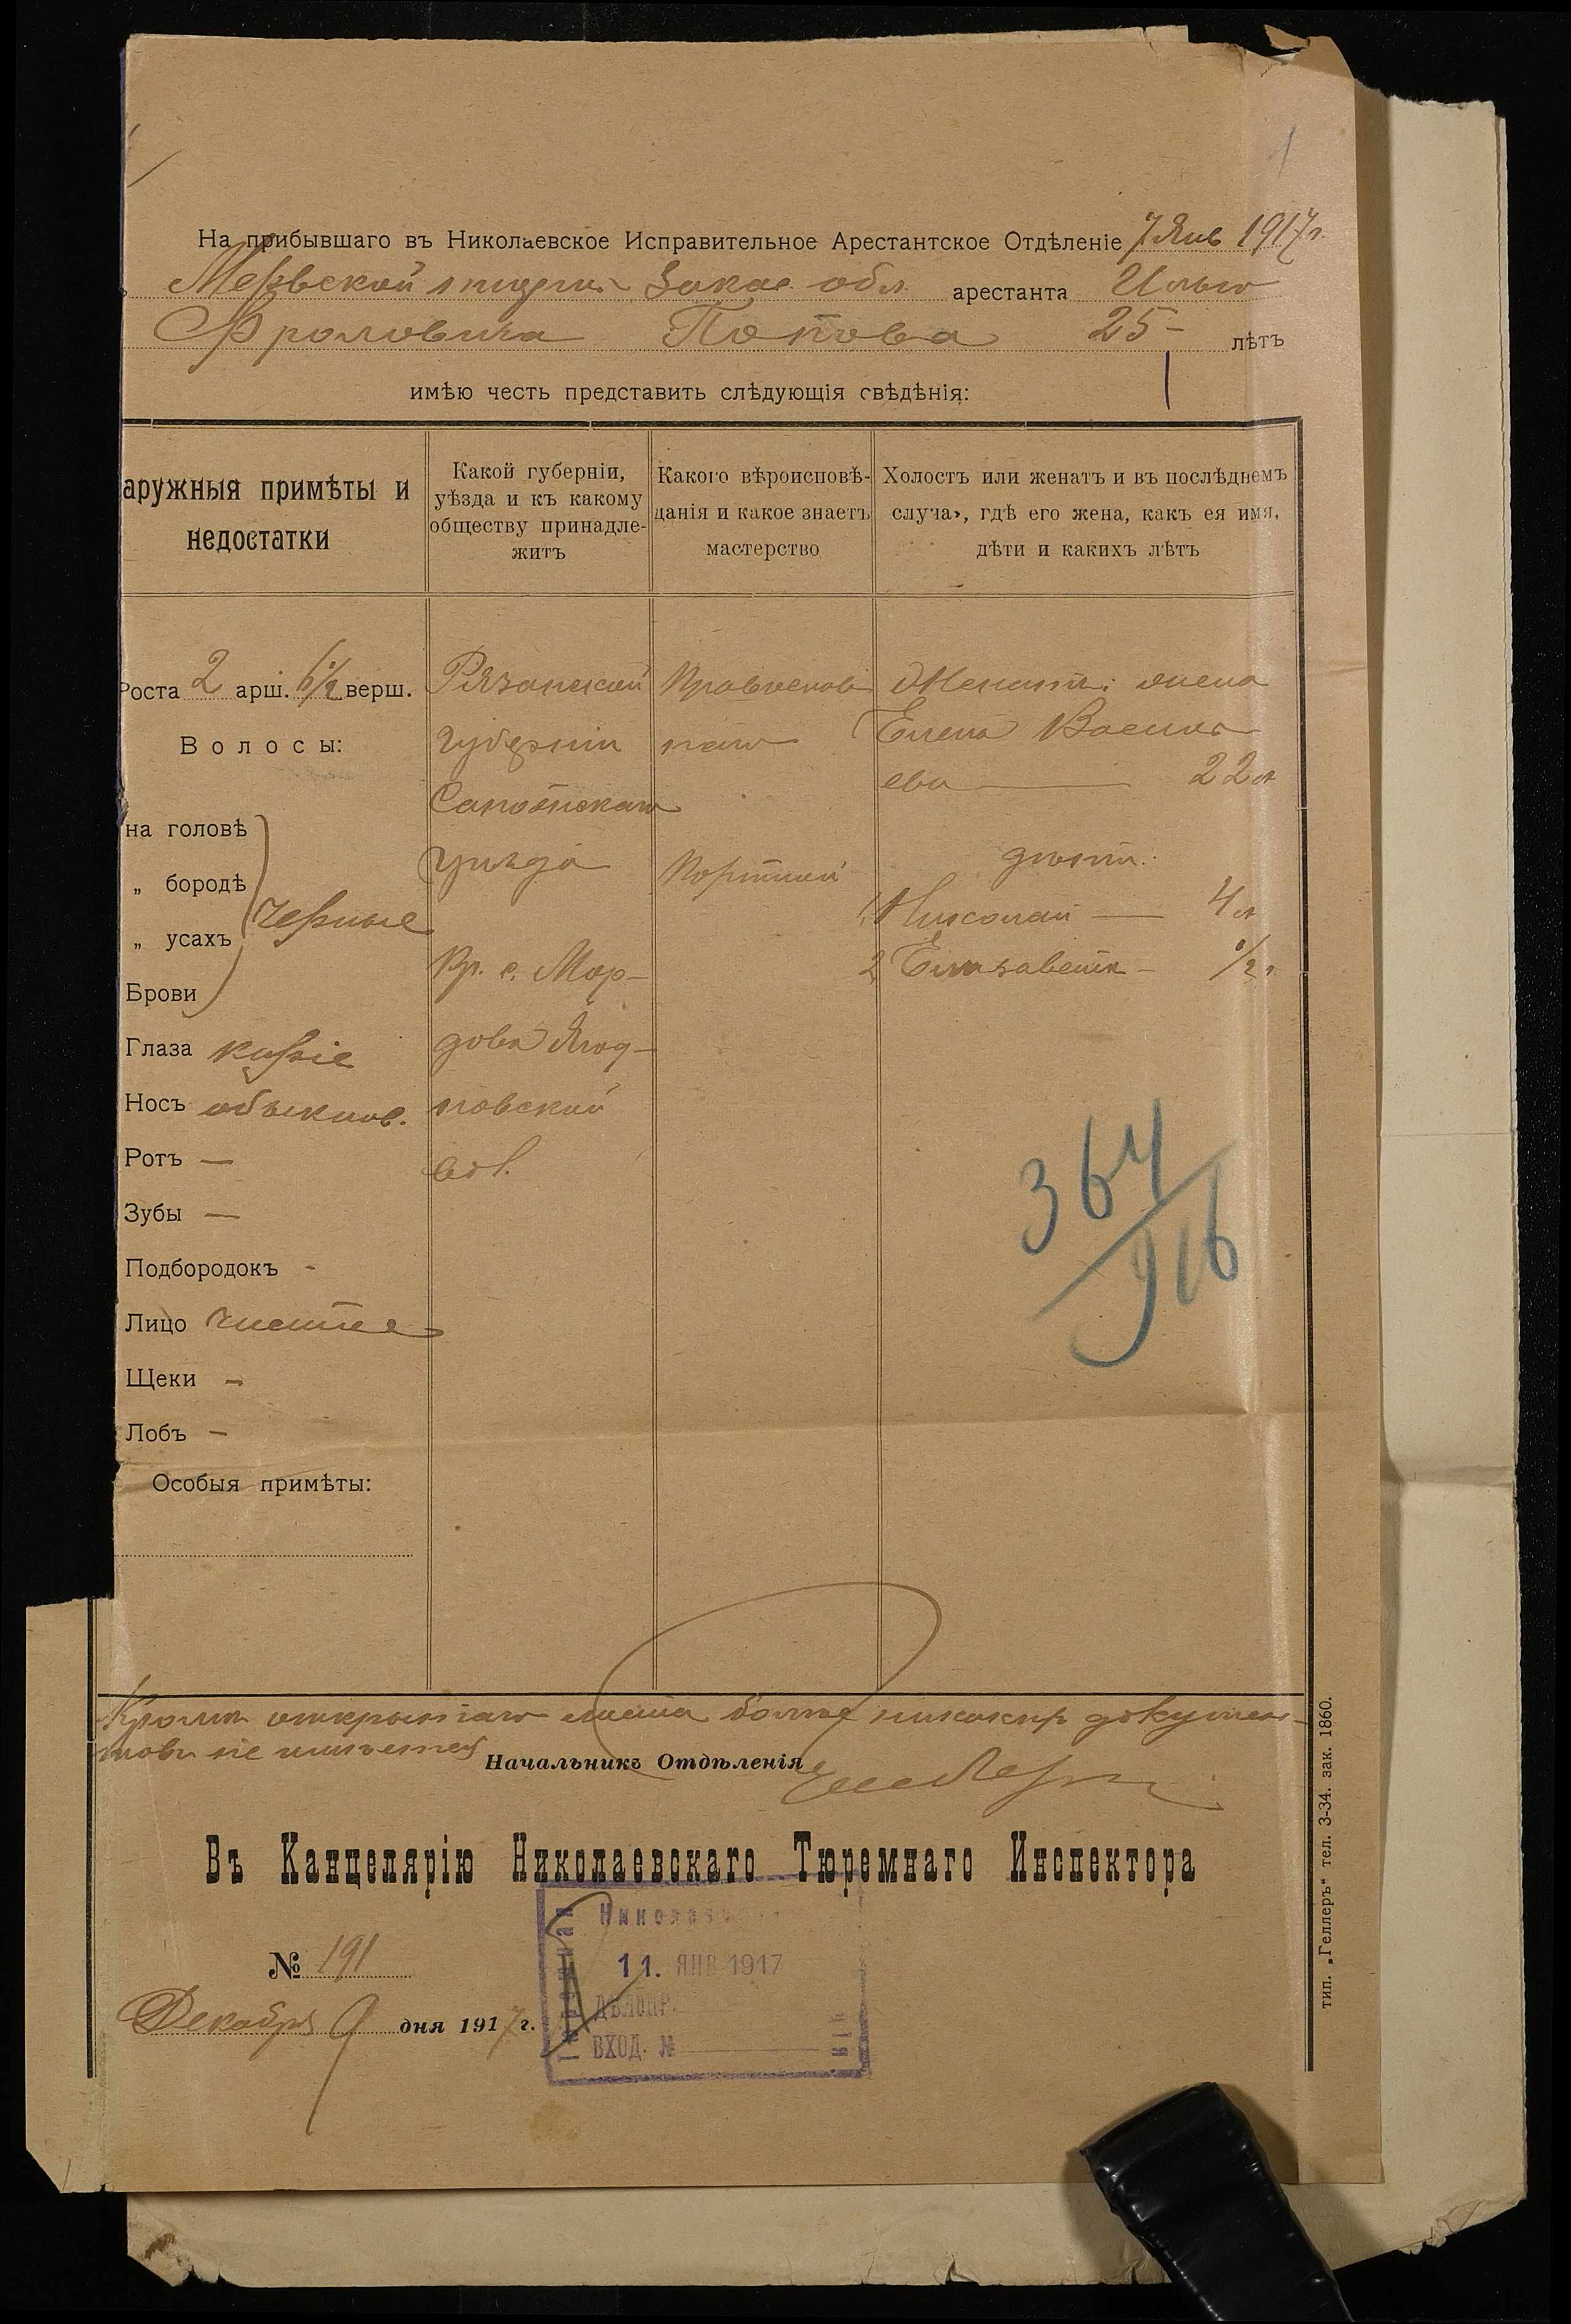 На прибывшаго въ Николаевское Исправительное Арестантское Отдѣленіе 7 Янв 1917 г.
Мервской тюрьмы Закас. обл. арестанта Илью
Фроловича Попова 25 - лѣтъ
имѣю честь представить слѣдующія свѣдѣнія:
аружныя примѣты и
недостатки
Какой губерніи,
уѣзда и къ какому
обществу принадле-
житъ
Какого вѣроисповѣ-
данія и какое знаетъ
мастерство
Холостъ или женатъ и въ послѣднемъ
случа, гдѣ его жена, какъ ея имя,
дѣти и какихъ лѣтъ
Роста 2 арш. 6½ верш.
Волосы:
на головѣ
„ бородѣ
„ усахъ
черные
Брови
Глаза карiе
Носъ обыкнов.
Ротъ —
Зубы —
Подбородокъ -
Лицо чистое
Щеки -
Лобъ -
Особыя примѣты:
Рязанской
губерніи
Сапожскаго
уѣзда
Кр. с. Мор-
дова Ягод-
новской
вол.
Православ
наго
Портной
Женатъ: жена
Елена Василь
ева — 22 л
дѣти:
1, Николай — 4 л
2, Елизавета — ½ г.
364/916
Кромѣ открытаго листа болѣе никакихъ докумен-
товъ не имѣется
Начальникъ Отдѣленія
Въ Канцелярію Николаевскаго Тюремнаго Инспектора
№ 191
Декабря 9 дня 1917 г.
Никола
11. ЯНВ 1917
ДѢЛОПР.
ВХОД. №
тип. „Геллеръ“ тел. 3-34. зак. 1860.